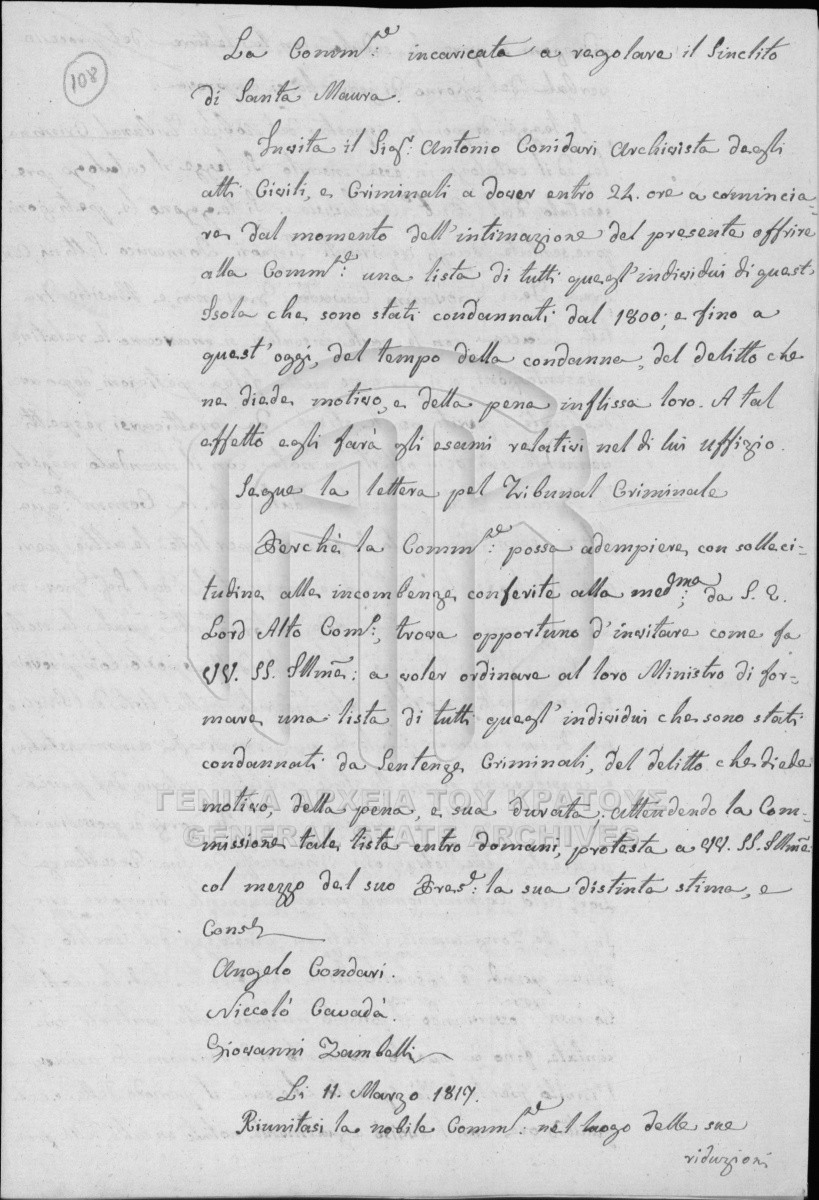 108
La Comm.e: incaricata a regolare il Sinclito
di Santa Maura.
Invita il Sigr: Antonio Conidari Archivista degli
atti Civili, e Criminali a dover entro 24. ore a comincia-
re dal momento dell'intimazione del presente offrire
alla Comm.e: una lista di tutti quegl'individui di quest'
Isola che sono stati condannati dal 1800; e fino a
quest'oggi, del tempo della condanna, del delitto che
ne diede motivo, e della pena inflissa loro. A tal
effetto egli farà gli esami relativi nel di lui Uffizio.
Segue la lettera pel Tribunal Criminale
Perchè la Comm.e: possa adempiere con solleci-
tudine alle incombenze conferite alla medma; da S. E.
Lord Alto Com:, trova opportuno d'invitare come fa
VV. SS. Illme: a voler ordinare al loro Ministro di for-
mare una lista di tutti quegl'individui che sono stati
condannati da Sentenze Criminali, del delitto che diede
motivo, della pena, e sua durata. attendendo la Com-
missione tale lista entro domani, protesta a VV. SS. Illme:
col mezzo del suo Presd: la sua distinta stima, e
Cons
Angelo Condari.
Niccolò Cavadà.
Giovanni Zambelli
Li 11. Marzo 1817.
Riunitasi la nobile Comm.e: nel luogo delle sue
riduzioni
ΓΕΝΙΚΑ ΑΡΧΕΙΑ ΤΟΥ ΚΡΑΤΟΥΣ
GENERAL STATE ARCHIVES